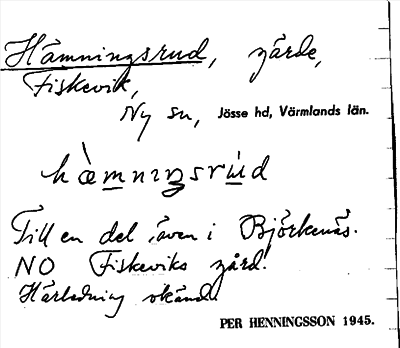 Hämningsrud, gärde,
Fiskevik,
Ny sn, Jösse hd, Värmlands län.
hæ̀mnıŋsru̇d
Till en del även i Björkenäs.
NO Fiskeviks gård.
Härledning okänd.
PER HENNINGSSON 1945.